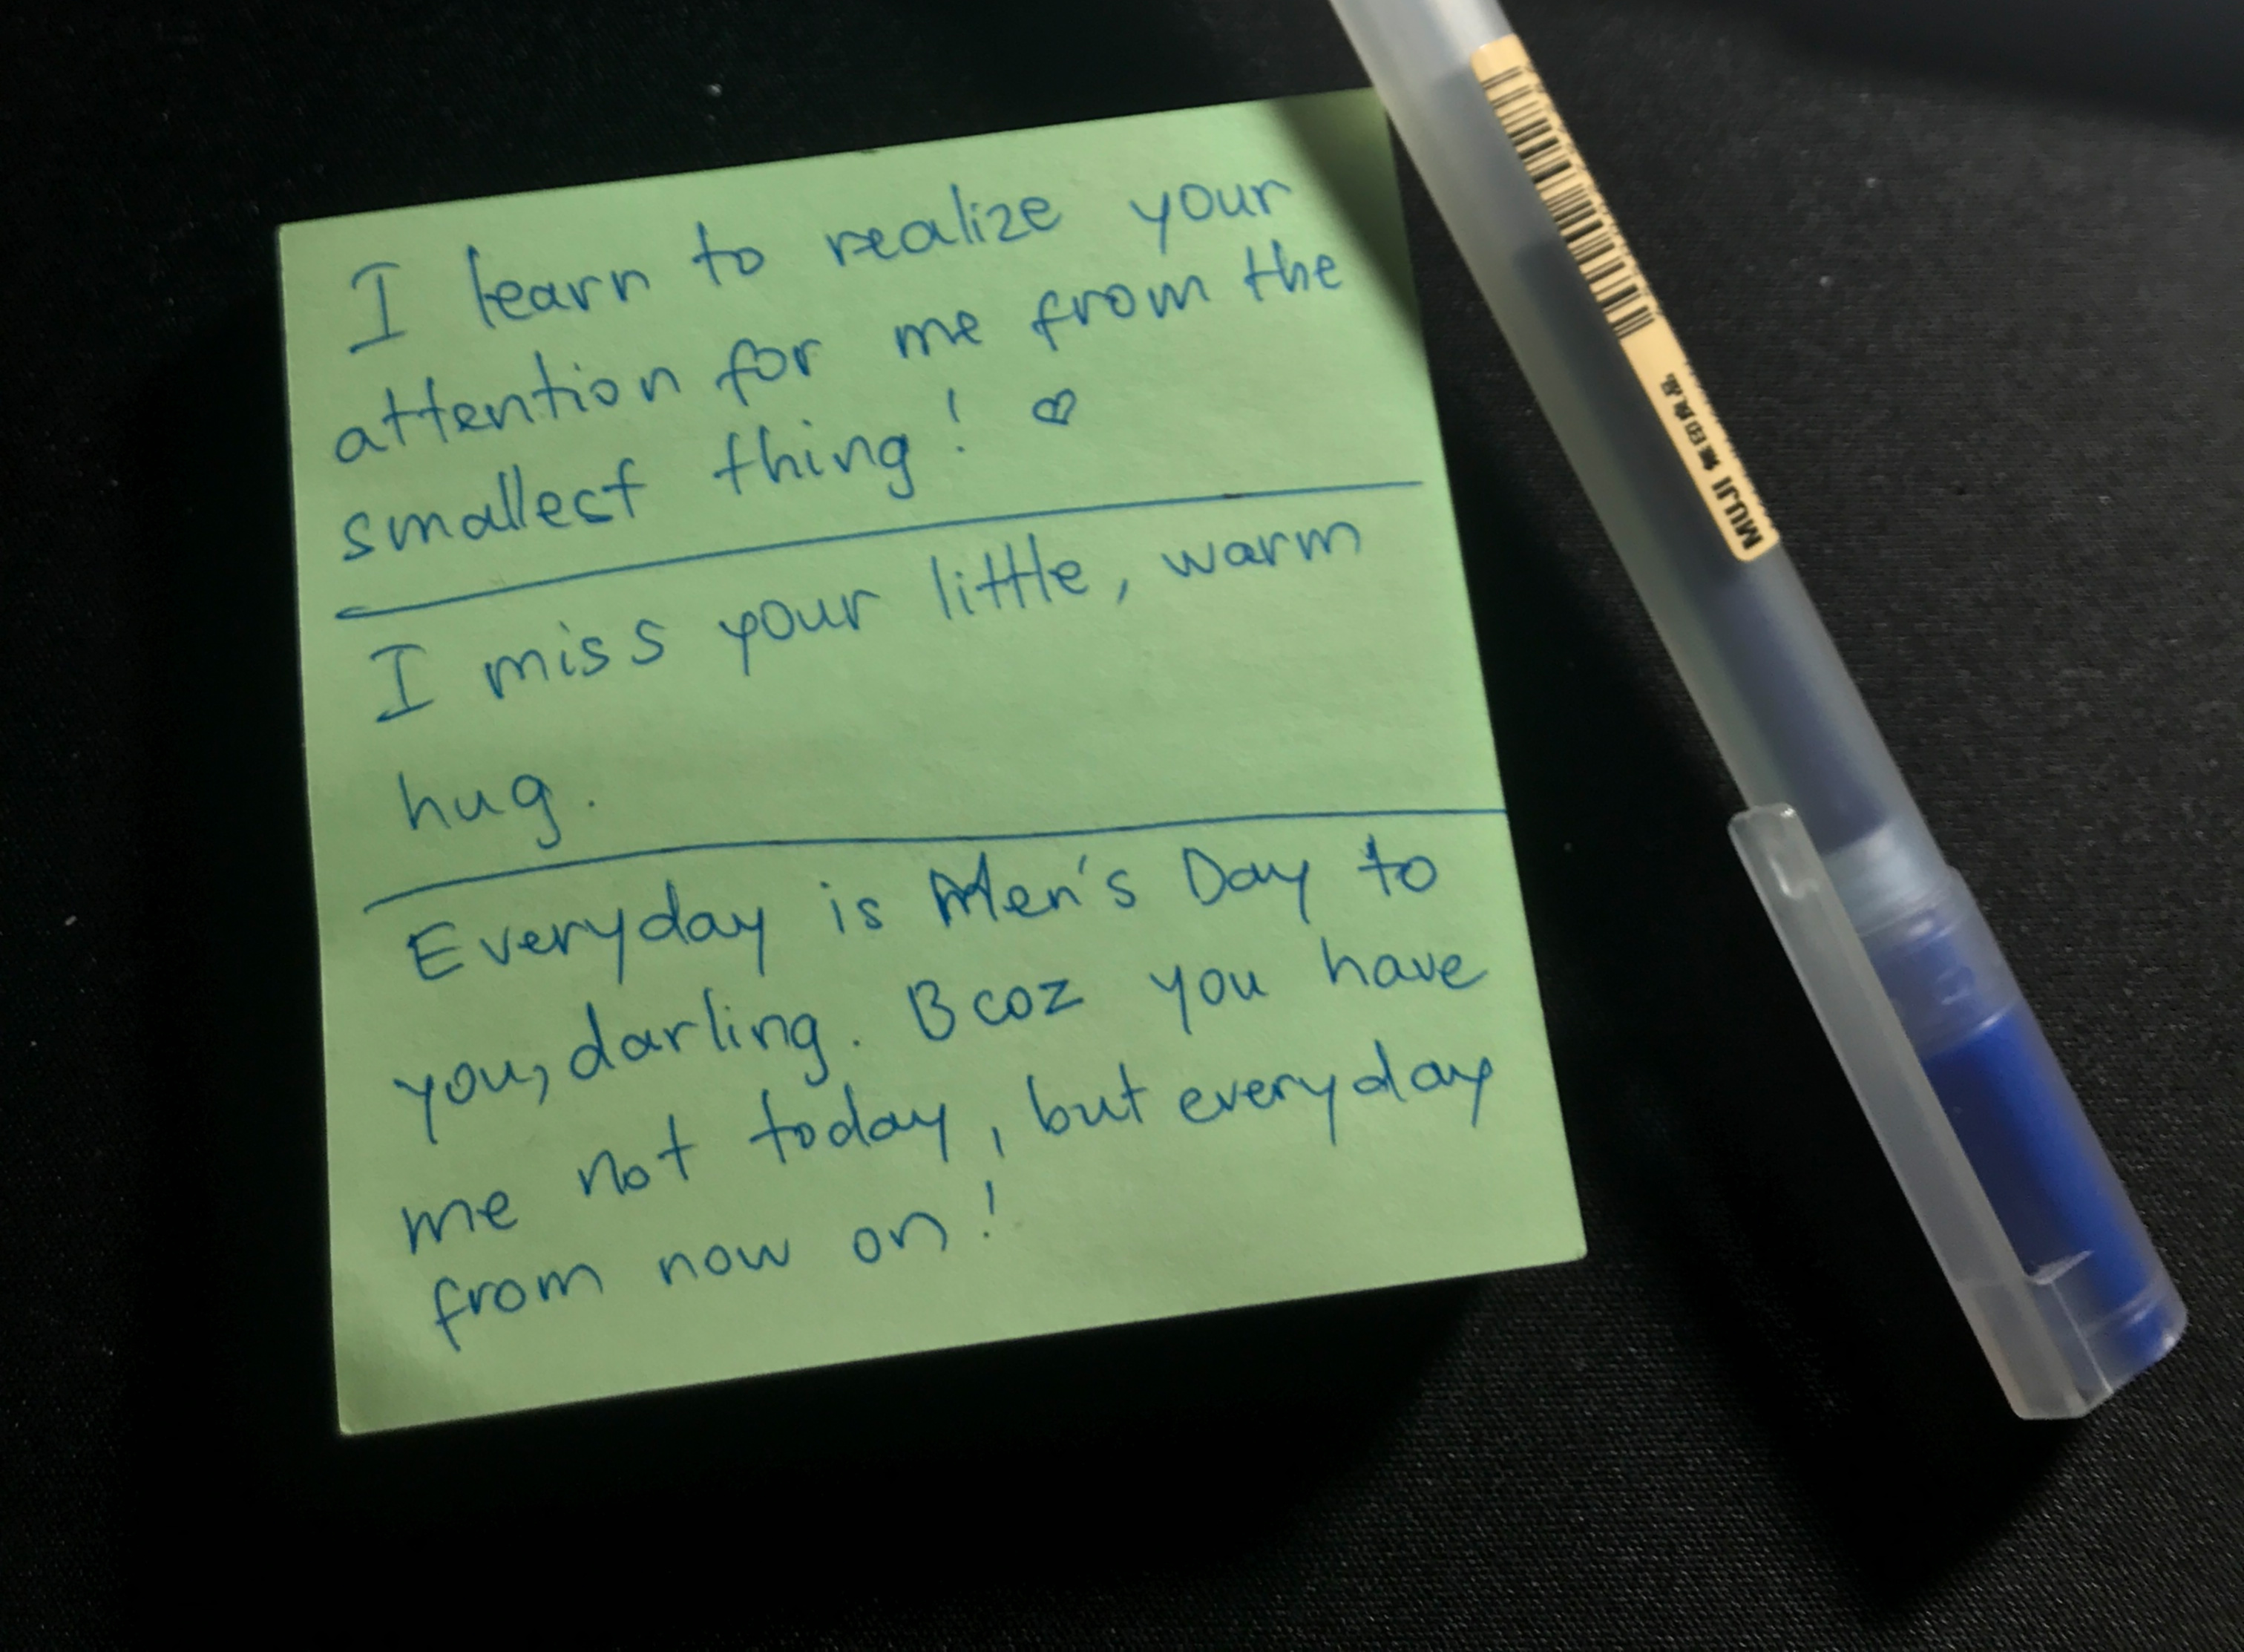 I learn to realize your
attention for me from the
smallest thing! ♡
I miss your little, warm
hug.
Everyday is Men's Day to
you, darling. Bcoz you have
me not today, but everyday
from now on!
MUJI 無印良品